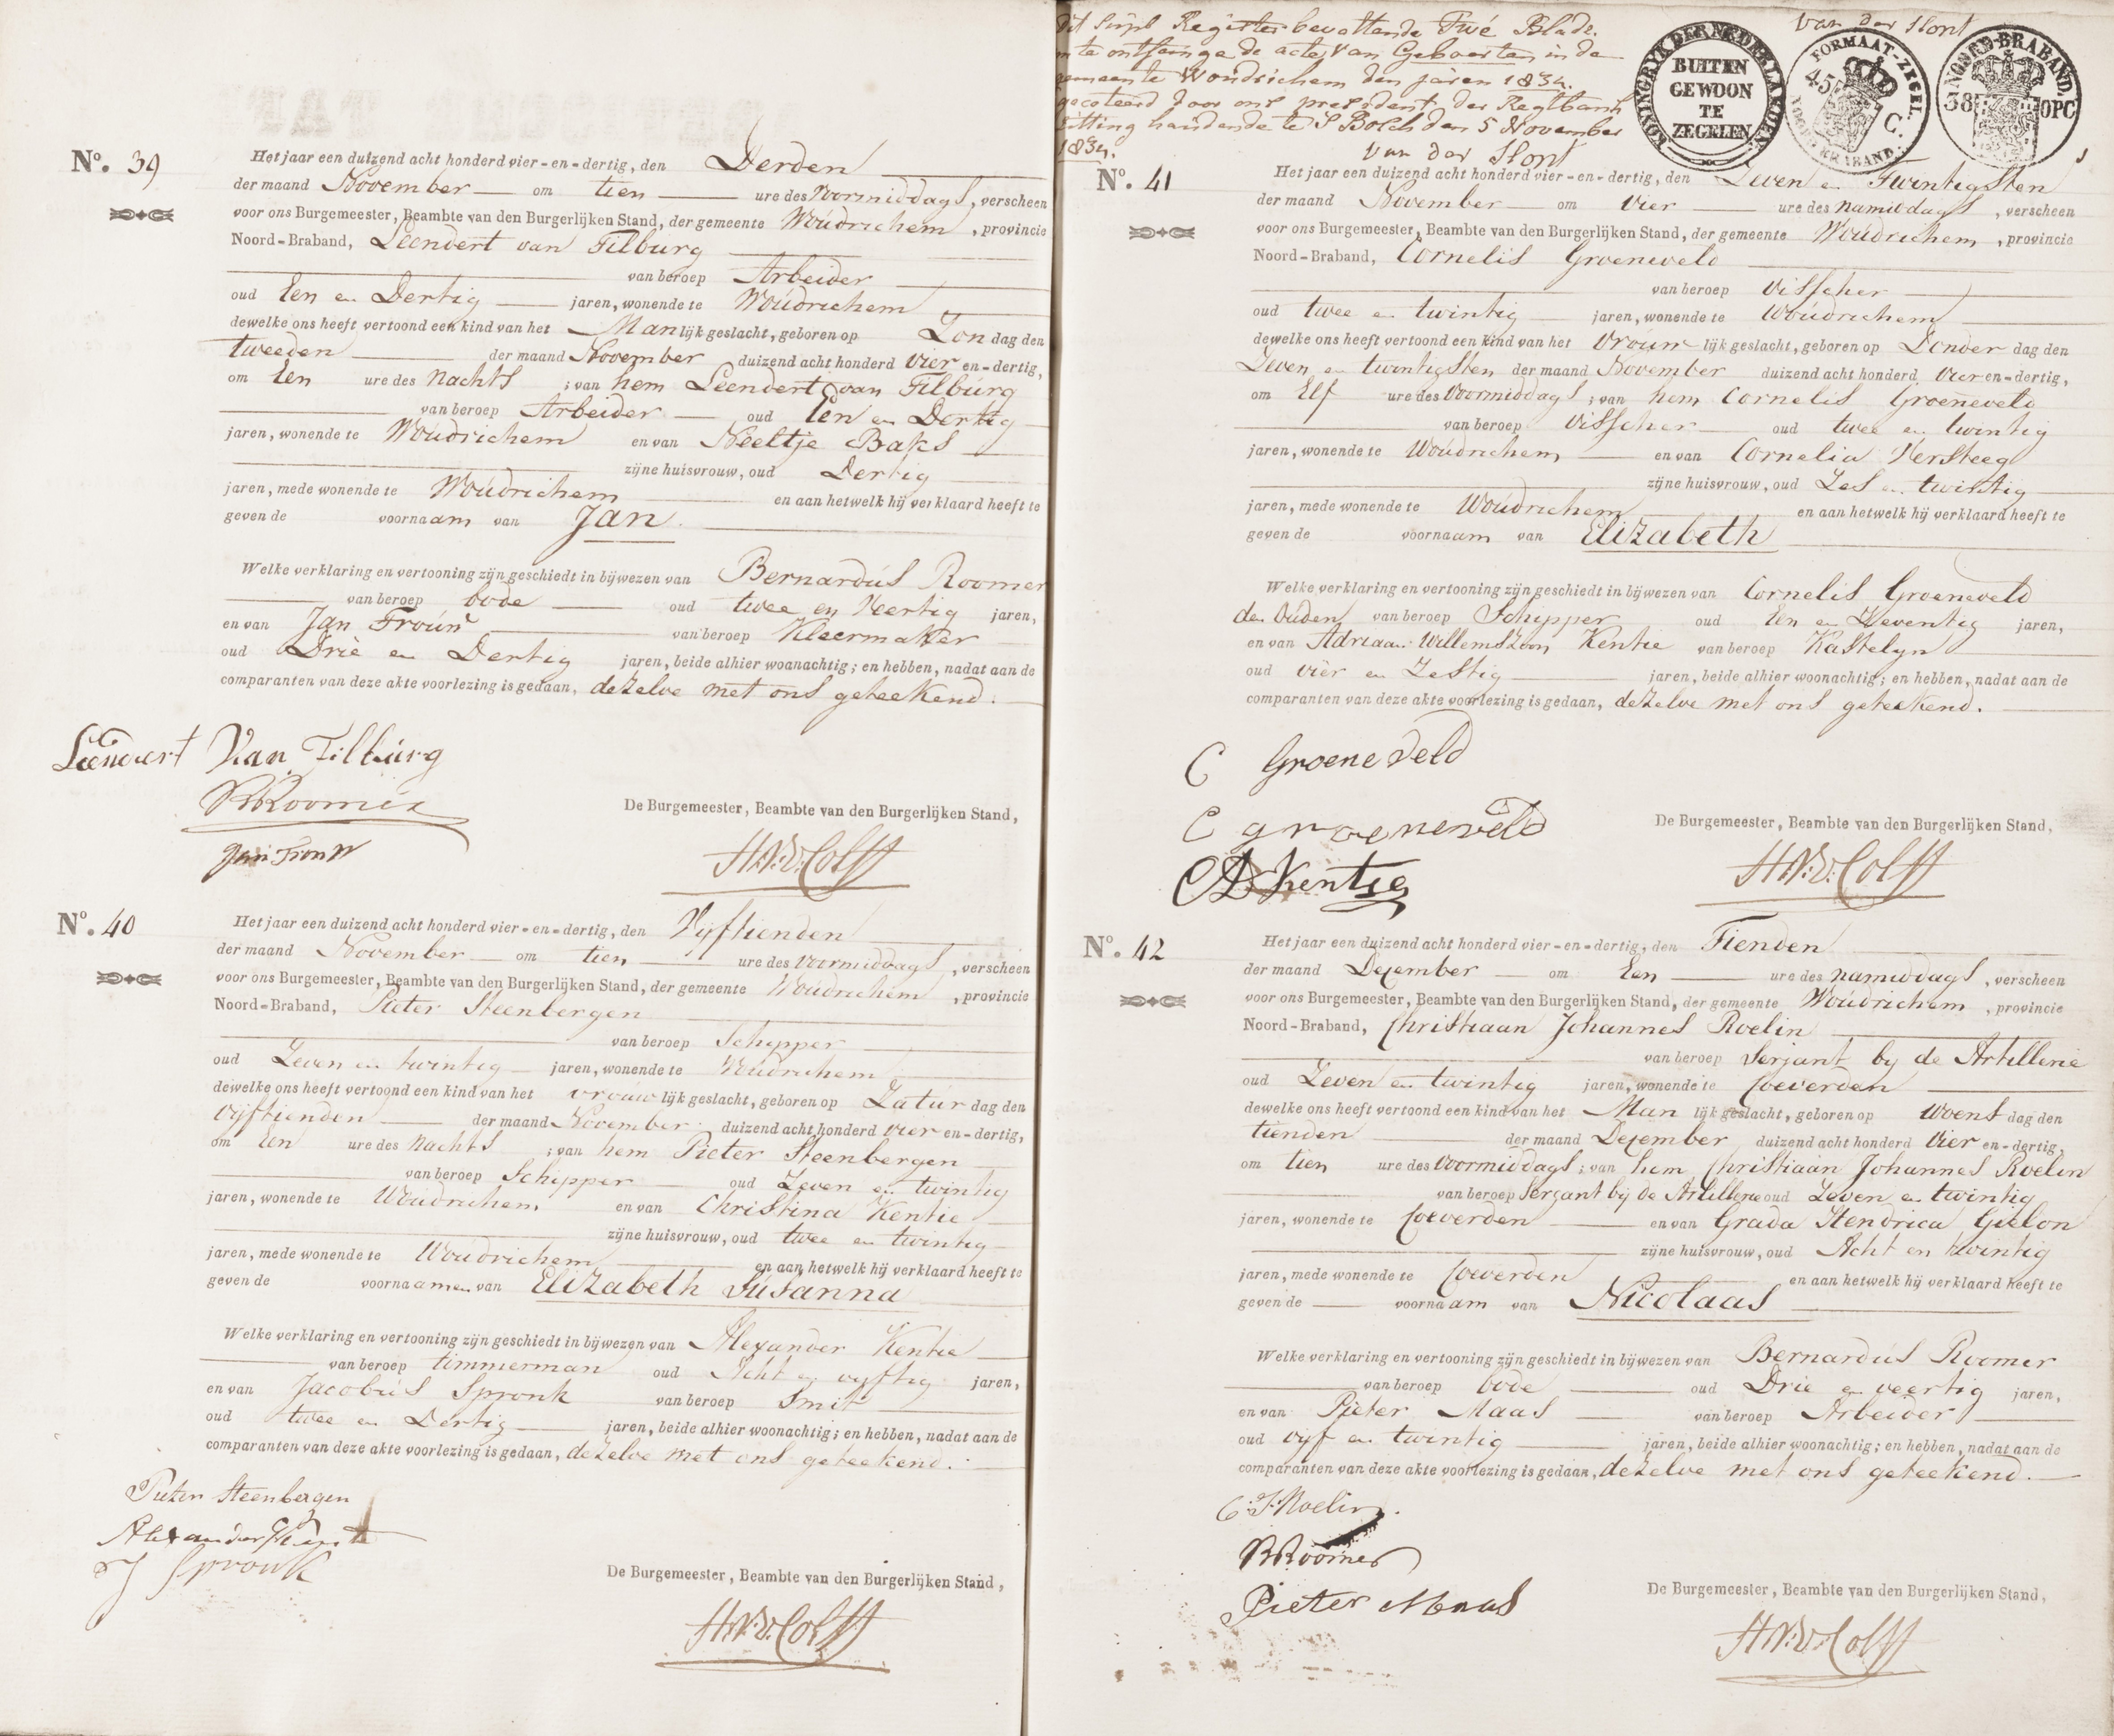 Nº. 39
Het jaar een duizend acht honderd vier-en-dertig, den Derden
der maand November om tien ure des voormiddags, verscheen
voor ons Burgemeester, Beambte van den Burgerlijken Stand, der gemeente Woúdrichem, provincie
Noord-Braband, Leendert van Tilburg
van beroep Arbeider
oud Een en Dertig jaren, wonende te Woúdrichem
dewelke ons heeft vertoond een kind van het Manlijk geslacht, geboren op Zondag den
tweeden der maand November duizend acht honderd vier en-dertig,
om Een ure des nachts ; van hem Leendert van Tilbúrg
van beroep Arbeider oud Een en Dertig
jaren, wonende te Woúdrichem en van Neeltje Baks
zijne huisvrouw, oud Dertig
jaren, mede wonende te Woúdrichem en aan hetwelk hij verklaard heeft te
geven de voornaam van Jan.
Welke verklaring en vertooning zijn geschiedt in bijwezen van Bernardús Roomer
van beroep bode oud twee en Veertig jaren,
en van Jan Troúw van beroep Kleermaker
oud Drie en Dertig jaren, beide alhier woanachtig; en hebben, nadat aan de
comparanten van deze akte voorlezing is gedaan, dezelve met ons geteekend.
Leendert Van Tilbúrg
BRoomer
Jan Trouw
De Burgemeester, Beambte van den Burgerlijken Stand,
H.N.v. Colff
Nº. 40
Het jaar een duizend acht honderd vier-en-dertig, den Vyftienden
der maand November om tien ure des voormiddags, verscheen
voor ons Burgemeester, Beambte van den Burgerlijken Stand, der gemeente Woúdrichem, provincie
Noord-Braband, Pieter Steenbergen
van beroep Schipper
oud Zeven en twintig jaren, wonende te Woúdrichem
dewelke ons heeft vertoond een kind van het vrouwlijk geslacht, geboren op Zatúrdag den
vyftienden der maand November duizend acht honderd vier en-dertig,
om Een ure des nachts ; van hem Pieter Steenbergen
van beroep Schipper oud Zeven en twintig
jaren, wonende te Woúdrichem en van Christina Kentie
zijne huisvrouw, oud twee en twintig
jaren, mede wonende te Woúdrichem en aan hetwelk hij verklaard heeft te
geven de voornaamen van Elizabeth Súsanna
Welke verklaring en vertooning zijn geschiedt in bijwezen van Alexander Kentie
van beroep timmerman oud Acht en vyftig jaren,
en van Jacobús Spronk van beroep Smit
oud twee en Dertig jaren, beide alhier woonachtig; en hebben, nadat aan de
comparanten van deze akte voorlezing is gedaan, dezelve met ons geteekend.
Pieter Steenbergen
Alexander
J Spronk
De Burgemeester, Beambte van den Burgerlijken Stand,
H.N.v. Colff
Register bevattende Twé Blade.
de acte van Geboorten in de
gemeente Woudrichem den jaren 1834.
gecoteerd door ons president der Regtbank
zitting houdende te S Bosch den 5 November
1834.
van der Hont
van der Hont
KONINGRYK DER NEDERLANDEN.
BUITEN
GEWOON
TE
ZEGELEN
FORMAAT-ZEGEL.
45 C.
NOORD BRABAND.
NOORD-BRABAND.
38 OPC
Nº. 41
Het jaar een duizend acht honderd vier-en-dertig, den Zeven en Twintigsten
der maand November om Vier ure des namiddags, verscheen
voor ons Burgemeester, Beambte van den Burgerlijken Stand, der gemeente Woúdrichem, provincie
Noord-Braband, Cornelis Groeneveld
van beroep Visscher
oud twee en twintig jaren, wonende te Woúdrichem
dewelke ons heeft vertoond een kind van het Vrouwlijk geslacht, geboren op Donderdag den
Zeven en twintigsten der maand November duizend acht honderd Vier en-dertig,
om Elf ure des Voormiddags ; van hem Cornelis Groeneveld
van beroep Visscher oud twee en twintig
jaren, wonende te Woúdrichem en van Cornelia Versteeg
zijne huisvrouw, oud Zes en twintig
jaren, mede wonende te Woúdrichem en aan hetwelk hij verklaard heeft te
geven de voornaam van Elizabeth
Welke verklaring en vertooning zijn geschiedt in bijwezen van Cornelis Groeneveld
den Ouden van beroep Schipper oud Een en Zeventig jaren,
en van Adriaan Willemszoon Kentie van beroep Kastelyn
oud vier en Zestig jaren, beide alhier woonachtig; en hebben, nadat aan de
comparanten van deze akte voorlezing is gedaan, dezelve met ons geteekend.
C Groeneveld
C groeneveld
A Kentie
De Burgemeester, Beambte van den Burgerlijken Stand,
H.N.v. Colff
Nº. 42
Het jaar een duizend acht honderd vier-en-dertig, den Tienden
der maand Dezember om Een ure des namiddags, verscheen
voor ons Burgemeester, Beambte van den Burgerlijken Stand, der gemeente Woúdrichem, provincie
Noord-Braband, Christiaan Johannes Roelin
van beroep Serjant by de Artillerie
oud Zeven en twintig jaren, wonende te Coeverden
dewelke ons heeft vertoond een kind van het Manlijk geslacht, geboren op Woensdag den
tienden der maand Dezember duizend acht honderd Vier en-dertig,
om tien ure des Voormiddags ; van hem Christiaan Johannes Roelin
van beroep Serjant bij de Artillerie oud Zeven en twintig
jaren, wonende te Coeverden en van Grada Hendrica Gielon
zijne huisvrouw, oud Acht en twintig
jaren, mede wonende te Coeverden en aan hetwelk hij verklaard heeft te
geven de voornaam van Nicolaas
Welke verklaring en vertooning zijn geschiedt in bijwezen van Bernardús Roomer
van beroep bode oud Drie en veertig jaren,
en van Pieter Maas van beroep Arbeider
oud vyf en twintig jaren, beide alhier woonachtig; en hebben, nadat aan de
comparanten van deze akte voorlezing is gedaan, dezelve met ons geteekend.
C:J:Roelin.
BRoomer
Pieter Maas
De Burgemeester, Beambte van den Burgerlijken Stand,
H.N.v. Colff